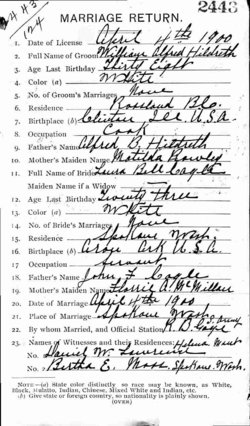 2443
2443
124
MARRIAGE RETURN.
1. Date of License April 4th 1900
2. Full Name of Groom William Alfred Hildreth
3. Age Last Birthday Thirty Eight
4. Color (a) White
5. No. of Groom's Marriages None
6. Residence Rossland B.C.
7. Birthplace (b) Clinton Ill U.S.A.
8. Occupation Cook
9. Father's Name Alfred B. Hildreth
10. Mother's Maiden Name Matilda Rowley
11. Full Name of Bride Laura Bell Cagle
Maiden Name if a Widow
12. Age Last Birthday Twenty three
13. Color (a) White
14. No. of Bride's Marriages None
15. Residence Spokane Wash.
16. Birthplace (b) Ark U.S.A.
17. Occupation Servant
18. Father's Name John F. Cagle
19. Mother's Maiden Name A. McMillan
20. Date of Marriage April 4th 1900
21. Place of Marriage Spokane Wash.
22. By whom Married, and Official Station
23. Names of Witnesses and their Residences: Helena Mont
No. Daniel W. Lawrence
No. 2 Bertha E. Moss, Spokane, Wash.
NOTE—(a) State color distinctly so race may be known, as White,
Black, Mulatto, Indian, Chinese, Mixed White and Indian, etc.
(b) Give state or foreign country, so nationality is plainly shown.
(OVER)